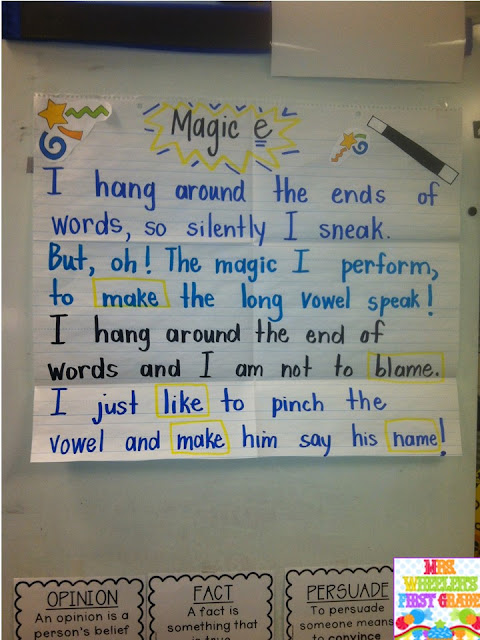 Magic e
I hang around the ends of
words, so silently I sneak.
But, oh! The magic I perform,
to make the long vowel speak!
I hang around the end of
words and I am not to blame.
I just like to pinch the
vowel and make him say his name!
OPINION
An opinion is a
person's belief
FACT
A fact is
something that
is true
PERSUADE
To persuade
someone means
to convince
MRS. WHEELER'S
FIRST GRADE